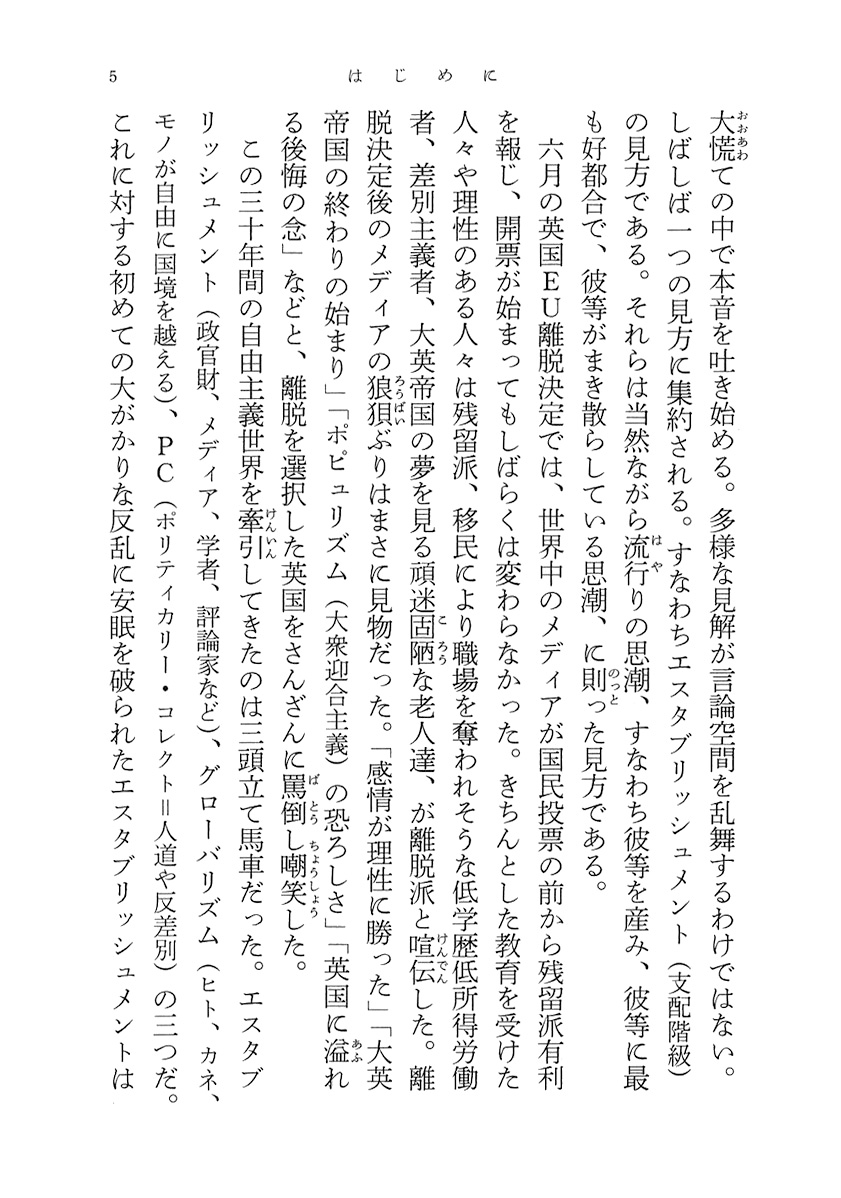 5
はじめに
大慌ての中で本音を吐き始める。多様な見解が言論空間を乱舞するわけではない。
しばしば一つの見方に集約される。すなわちエスタブリッシュメント(支配階級)
の見方である。それらは当然ながら流行りの思潮、すなわち彼等を産み、彼等に最
も好都合で、彼等がまき散らしている思潮、に則った見方である。
六月の英国EU離脱決定では、世界中のメディアが国民投票の前から残留派有利
を報じ、開票が始まってもしばらくは変わらなかった。きちんとした教育を受けた
人々や理性のある人々は残留派、移民により職場を奪われそうな低学歴低所得労働
者、差別主義者、大英帝国の夢を見る頑迷固陋な老人達、が離脱派と喧伝した。離
脱決定後のメディアの狼狽ぶりはまさに見物だった。「感情が理性に勝った」「大英
帝国の終わりの始まり」「ポピュリズム(大衆迎合主義)の恐ろしさ」「英国に溢れ
る後悔の念」などと、離脱を選択した英国をさんざんに罵倒し嘲笑した。
この三十年間の自由主義世界を牽引してきたのは三頭立て馬車だった。エスタブ
リッシュメント(政官財、メディア、学者、評論家など)、グローバリズム(ヒト、カネ、
モノが自由に国境を越える)、PC(ポリティカリー・コレクト=人道や反差別)の三つだ。
これに対する初めての大がかりな反乱に安眠を破られたエスタブリッシュメントは